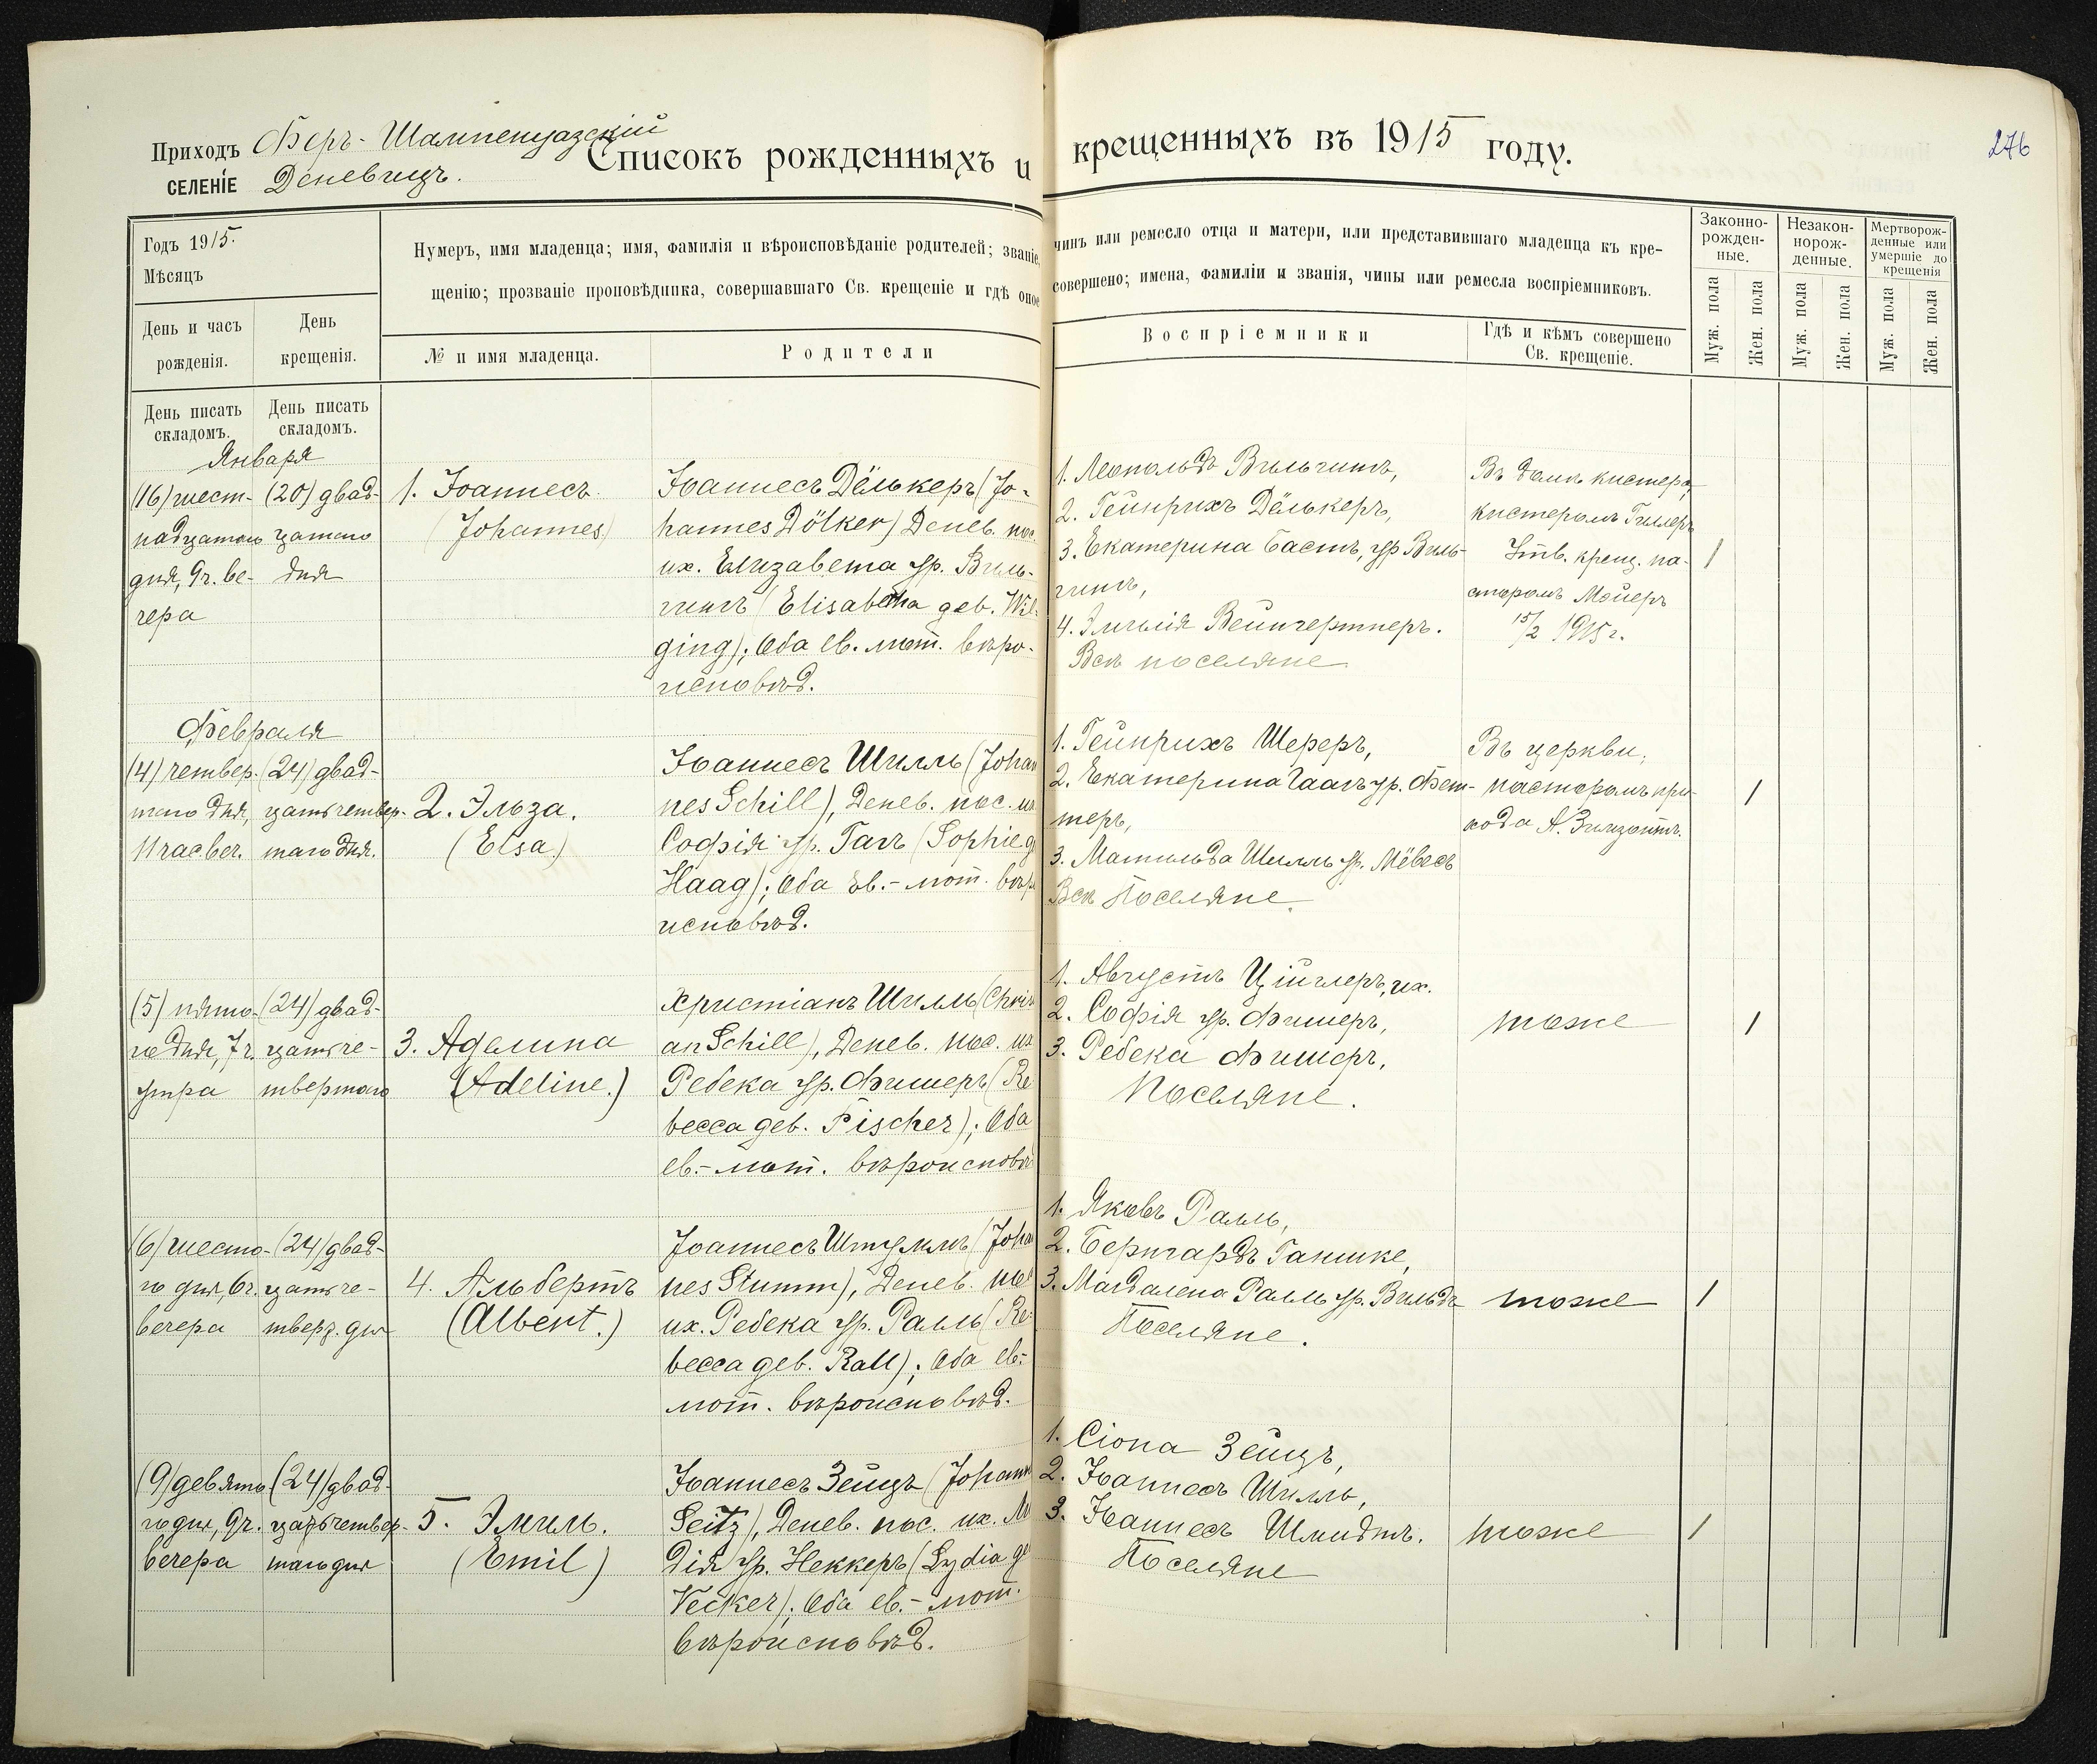 Приходъ Феръ-Шампенуазскій
селеніе Деневицъ.
Списокъ рожденныхъ и крещенныхъ въ 1915 году.
276
Годъ 1915.
Мѣсяцъ
День и часъ рожденія.
День крещенія.
Нумеръ, имя младенца; имя, фамилія и вѣроисповѣданіе родителей; званіе, чинъ или ремесло отца и матери, или представившаго младенца къ кре-
щенію; прозваніе проповѣдника, совершавшаго Св. крещеніе и гдѣ оное совершено; имена, фамиліи и званія, чины или ремесла воспріемниковъ.
№ и имя младенца.
Родители
Воспріемники
Гдѣ и кѣмъ совершено
Св. крещеніе.
Законно-
рожден-
ные.
Незакон-
норож-
денные.
Мертворож-
денные или
умершіе до
крещенія
Муж. пола
Жен. пола
Муж. пола
Жен. пола
Муж. пола
Жен. пола
День писать
складомъ.
День писать
складомъ.
Января
(16) шест-
надцатаго
дня, 9ч. ве-
чера
(20) двад-
цатаго
дня
1. Іоаннесъ
(Johannes)
Іоаннесъ Дёлькеръ (Jo-
hannes Dölker) Денев. пос.
их. Елизабета ур. Виль-
гингъ (Elisabetha geb. Wil-
ging); Оба ев. лют. вѣро-
исповѣд.
1. Леопольдъ Вильгингъ,
2. Гейнрихъ Дёлькеръ,
3. Екатерина Бастъ, ур Виль-
гингъ,
4. Эмилія Вейнгертнеръ.
Всѣ поселяне
Въ домѣ кистера,
кистеромъ Гиллеръ
Утв. крещ. па-
сторомъ Мойеръ
15/2 1915 г.
/
Февраля
(4) четвер-
таго дня,
11 час. веч.
(24) двад-
цать четвер-
таго дня.
2. Эльза.
(Elsa)
Іоаннесъ Шилль (Johan
nes Schill), Денев. пос. их
Софія ур. Гагъ (Sophie g
Haag); Оба Ев.-лют. вѣр
исповѣд.
1. Гейнрихъ Шереръ,
2. Екатерина Гаагъ ур. Фет-
теръ,
3. Матильда Шилль ур. Мёвесъ
Всѣ Поселяне.
Въ церкви,
пасторомъ при-
хода А.
/
(5) пято-
го дня, 7 ч.
утра
(24) двад-
цать че-
твертаго
3. Аделина
(Adeline.)
Христіанъ Шилль (Chris
an Schill), Денев. пос. их
Ребека ур. Фишеръ (Re
becca geb. Fischer); Оба
ев.-лют. вѣроисповѣ
1. Августъ Ційглеръ, их.
2. Софія ур. Фишеръ,
3. Ребека Фишеръ,
Поселяне.
тоже
/
(6) шесто-
го дня, 6ч.
вечера
(24) двад-
цать че-
тверт. дня
4. Альбертъ
(Albert.)
Іоаннесъ Штуммъ (Joha
nes Stumm), Денев. пос
их. Ребека ур. Ралль (Re-
becca geb. Rall); Оба ев.-
лют. вѣроисповѣд.
1. Яковъ Ралль,
2. Бернгардъ Ганшке,
3. Магдалена Ралль ур. Вильдъ
Поселяне.
тоже
/
(9) девято
го дня, 9ч.
вечера
(24) двад-
цать четвер-
таго дня
5. Эмиль.
(Emil)
Іоаннесъ Зейцъ (Johann
Seitz), Денев. пос. их. Ли
дія ур. Неккеръ (Lydia ge
Necker); Оба ев.-лют.
вѣроисповѣд.
1. Сіона Зейцъ,
2. Іоаннесъ Шилль,
3. Іоаннесъ Шмидтъ.
Поселяне
тоже
/